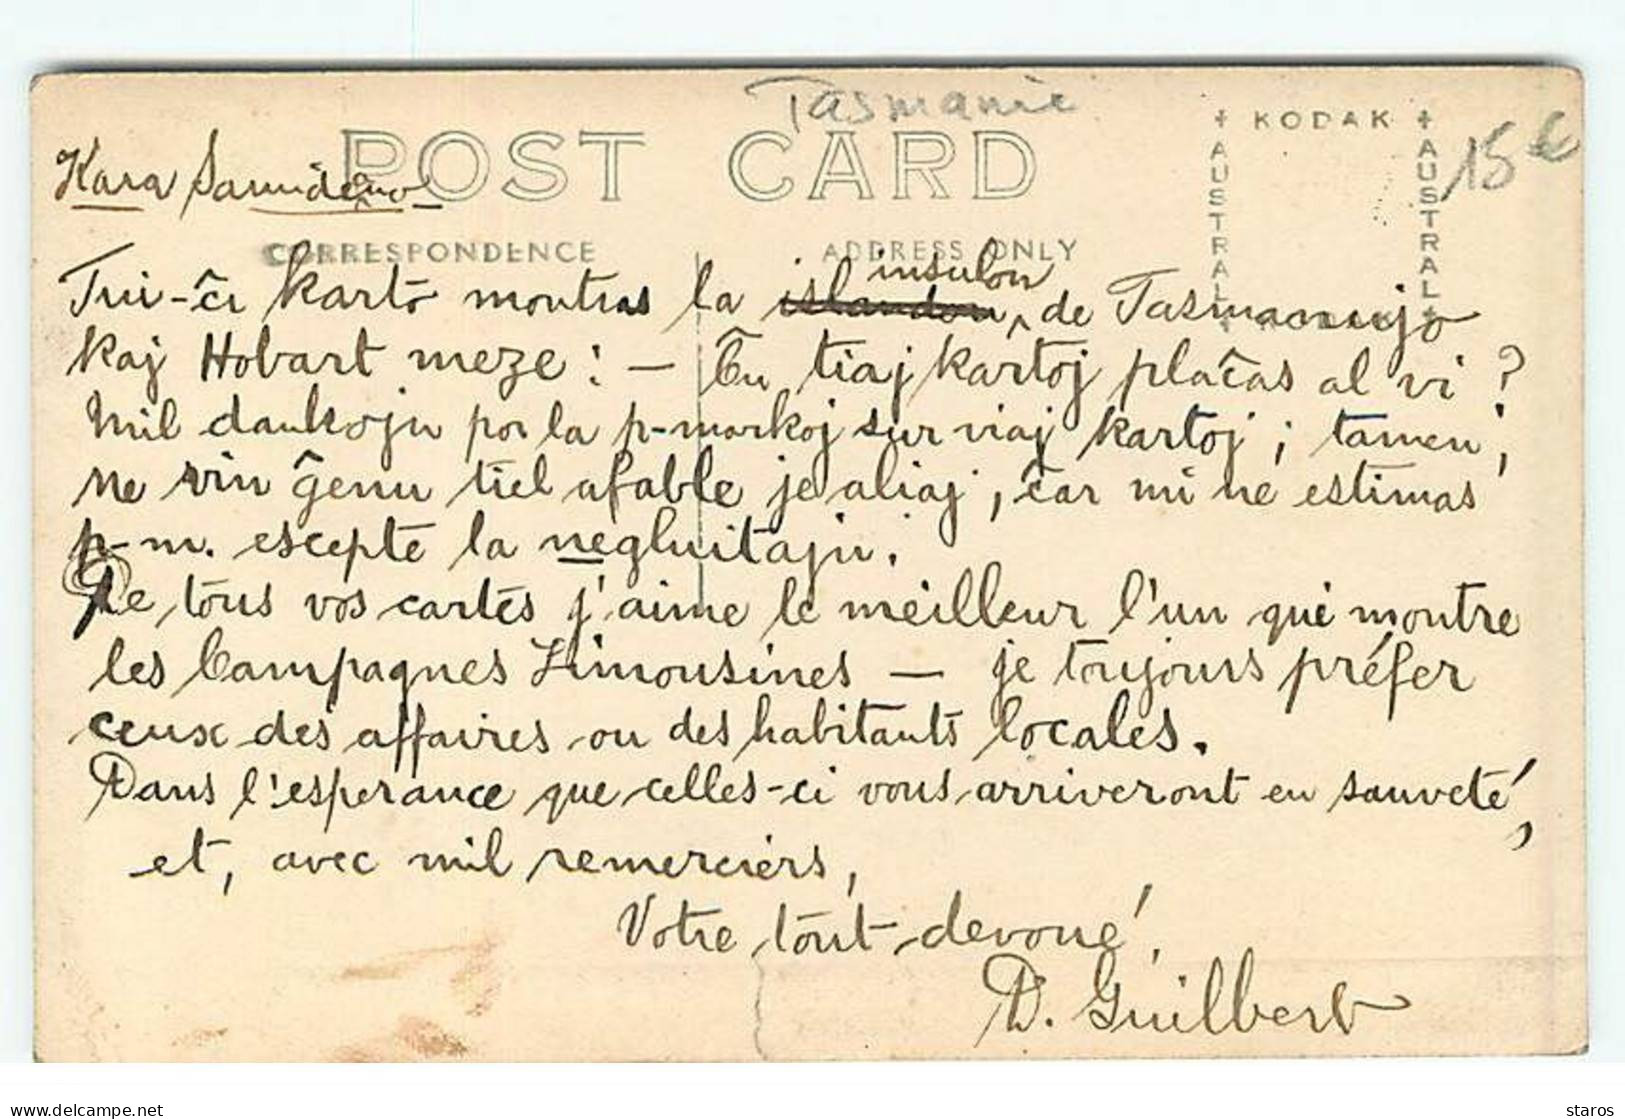 Tasmanie
POST CARD
+ KODAK +
AUSTRAL
AUSTRAL
15 €
Kara Samideano
CORRESPONDENCE
ADDRESS ONLY
insulon
Tiu-ĉi karto montras la islandon, de Tasmanujo
kaj Hobart meze! — Ĉu tiaj kartoj plaĉas al vi?
Mil dankojn por la p-markoj sur viaj kartoj; tamen,
ne vin ĝenu tiel afable je aliaj, ĉar mi ne estimas
p-m. escepte la negluitajn.
De tous vos cartes j'aime le meilleur l'un qui montre
les Campagnes Limousines — je toujours préfer
ceux des affaires ou des habitants locales.
Dans l'esperance que celles-ci vous arriveront en sauveté,
et, avec mil remerciers,
Votre tout devoué,
D. Guilbert
delcampe.net
staros